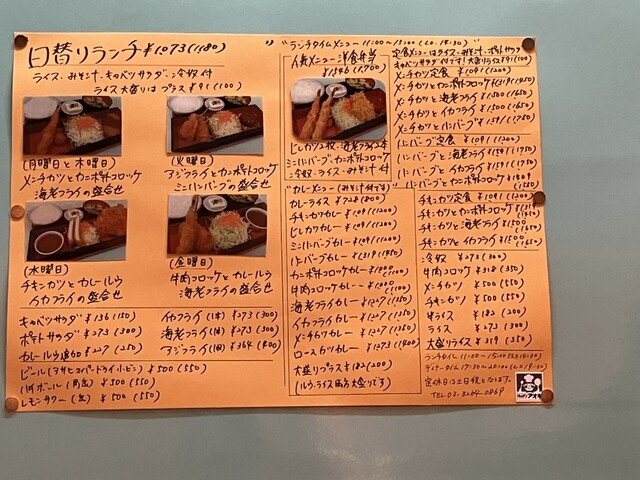 日替りランチ ¥1,073(1,180)
ライス、みそ汁、キャベツサラダ、冷奴付
ライス大盛りはプラス¥91(100)
(月曜日と木曜日)
メンチカツとカニポテトコロッケ
海老フライの盛合せ
(火曜日)
アジフライとカニポテトコロッケ
ミニハンバーグの盛合せ
(水曜日)
チキンカツとカレールウ
イカフライの盛合せ
(金曜日)
牛肉コロッケとカレールウ
海老フライの盛合せ
キャベツサラダ ¥136(150)
ポテトサラダ ¥273(300)
カレールウ ¥227(250)
イカフライ(1本) ¥273(300)
海老フライ(1本) ¥273(300)
アジフライ(1枚) ¥364(400)
ビール(アサヒスーパードライ小ビン) ¥500(550)
ハイボール(角缶) ¥500(550)
レモンサワー(缶) ¥500(550)
"ランチタイムメニュー 11:00〜15:00(L.O. 14:30)"
人気メニュー 洋食弁当
¥1,546(1,700)
ヒレカツ2枚、海老フライ2本
ミニハンバーグ、カニポテトコロッケ
冷奴、ライス、みそ汁付
"カレーメニュー(みそ汁付です)
カレーライス ¥728(800)
チキンカツカレー ¥1091(1200)
ヒレカツカレー ¥1091(1200)
ミニハンバーグカレー ¥1091(1200)
ハンバーグカレー
カニポテトコロッケカレー
牛肉コロッケカレー
海老フライカレー ¥1227(1350)
イカフライカレー ¥1227(1350)
メンチカツカレー ¥1227(1350)
ロースカツカレー ¥1273(1400)
大盛りプラス ¥182(200)
(ルウ、ライス両方大盛りです)
定食メニューはライス、みそ汁、ポテトサラダ
キャベツサラダ付です!大盛りライス¥91(100)
メンチカツ定食 ¥1091(1200)
メンチカツとカニポテトコロッケ
メンチカツと海老フライ ¥1500(1650)
メンチカツとイカフライ ¥1500(1650)
メンチカツとハンバーグ ¥1591(1750)
ハンバーグ定食 ¥1091(1200)
ハンバーグと海老フライ ¥1591(1750)
ハンバーグとイカフライ ¥1591(1750)
ハンバーグとカニポテトコロッケ
チキンカツ定食 ¥1091(1200)
チキンカツとカニポテトコロッケ
チキンカツと海老フライ ¥1500(1650)
チキンカツとイカフライ ¥1500(1650)
冷奴 ¥273(300)
牛肉コロッケ ¥318(350)
メンチカツ ¥500(550)
チキンカツ ¥500(550)
半ライス ¥182(200)
ライス ¥273(300)
大盛りライス ¥319(350)
ランチタイム 11:00〜15:00(L.O.14:30)
ディナータイム 17:30〜20:00(L.O.19:30)
定休日は土日祝となります。
TEL 03-3264-0869